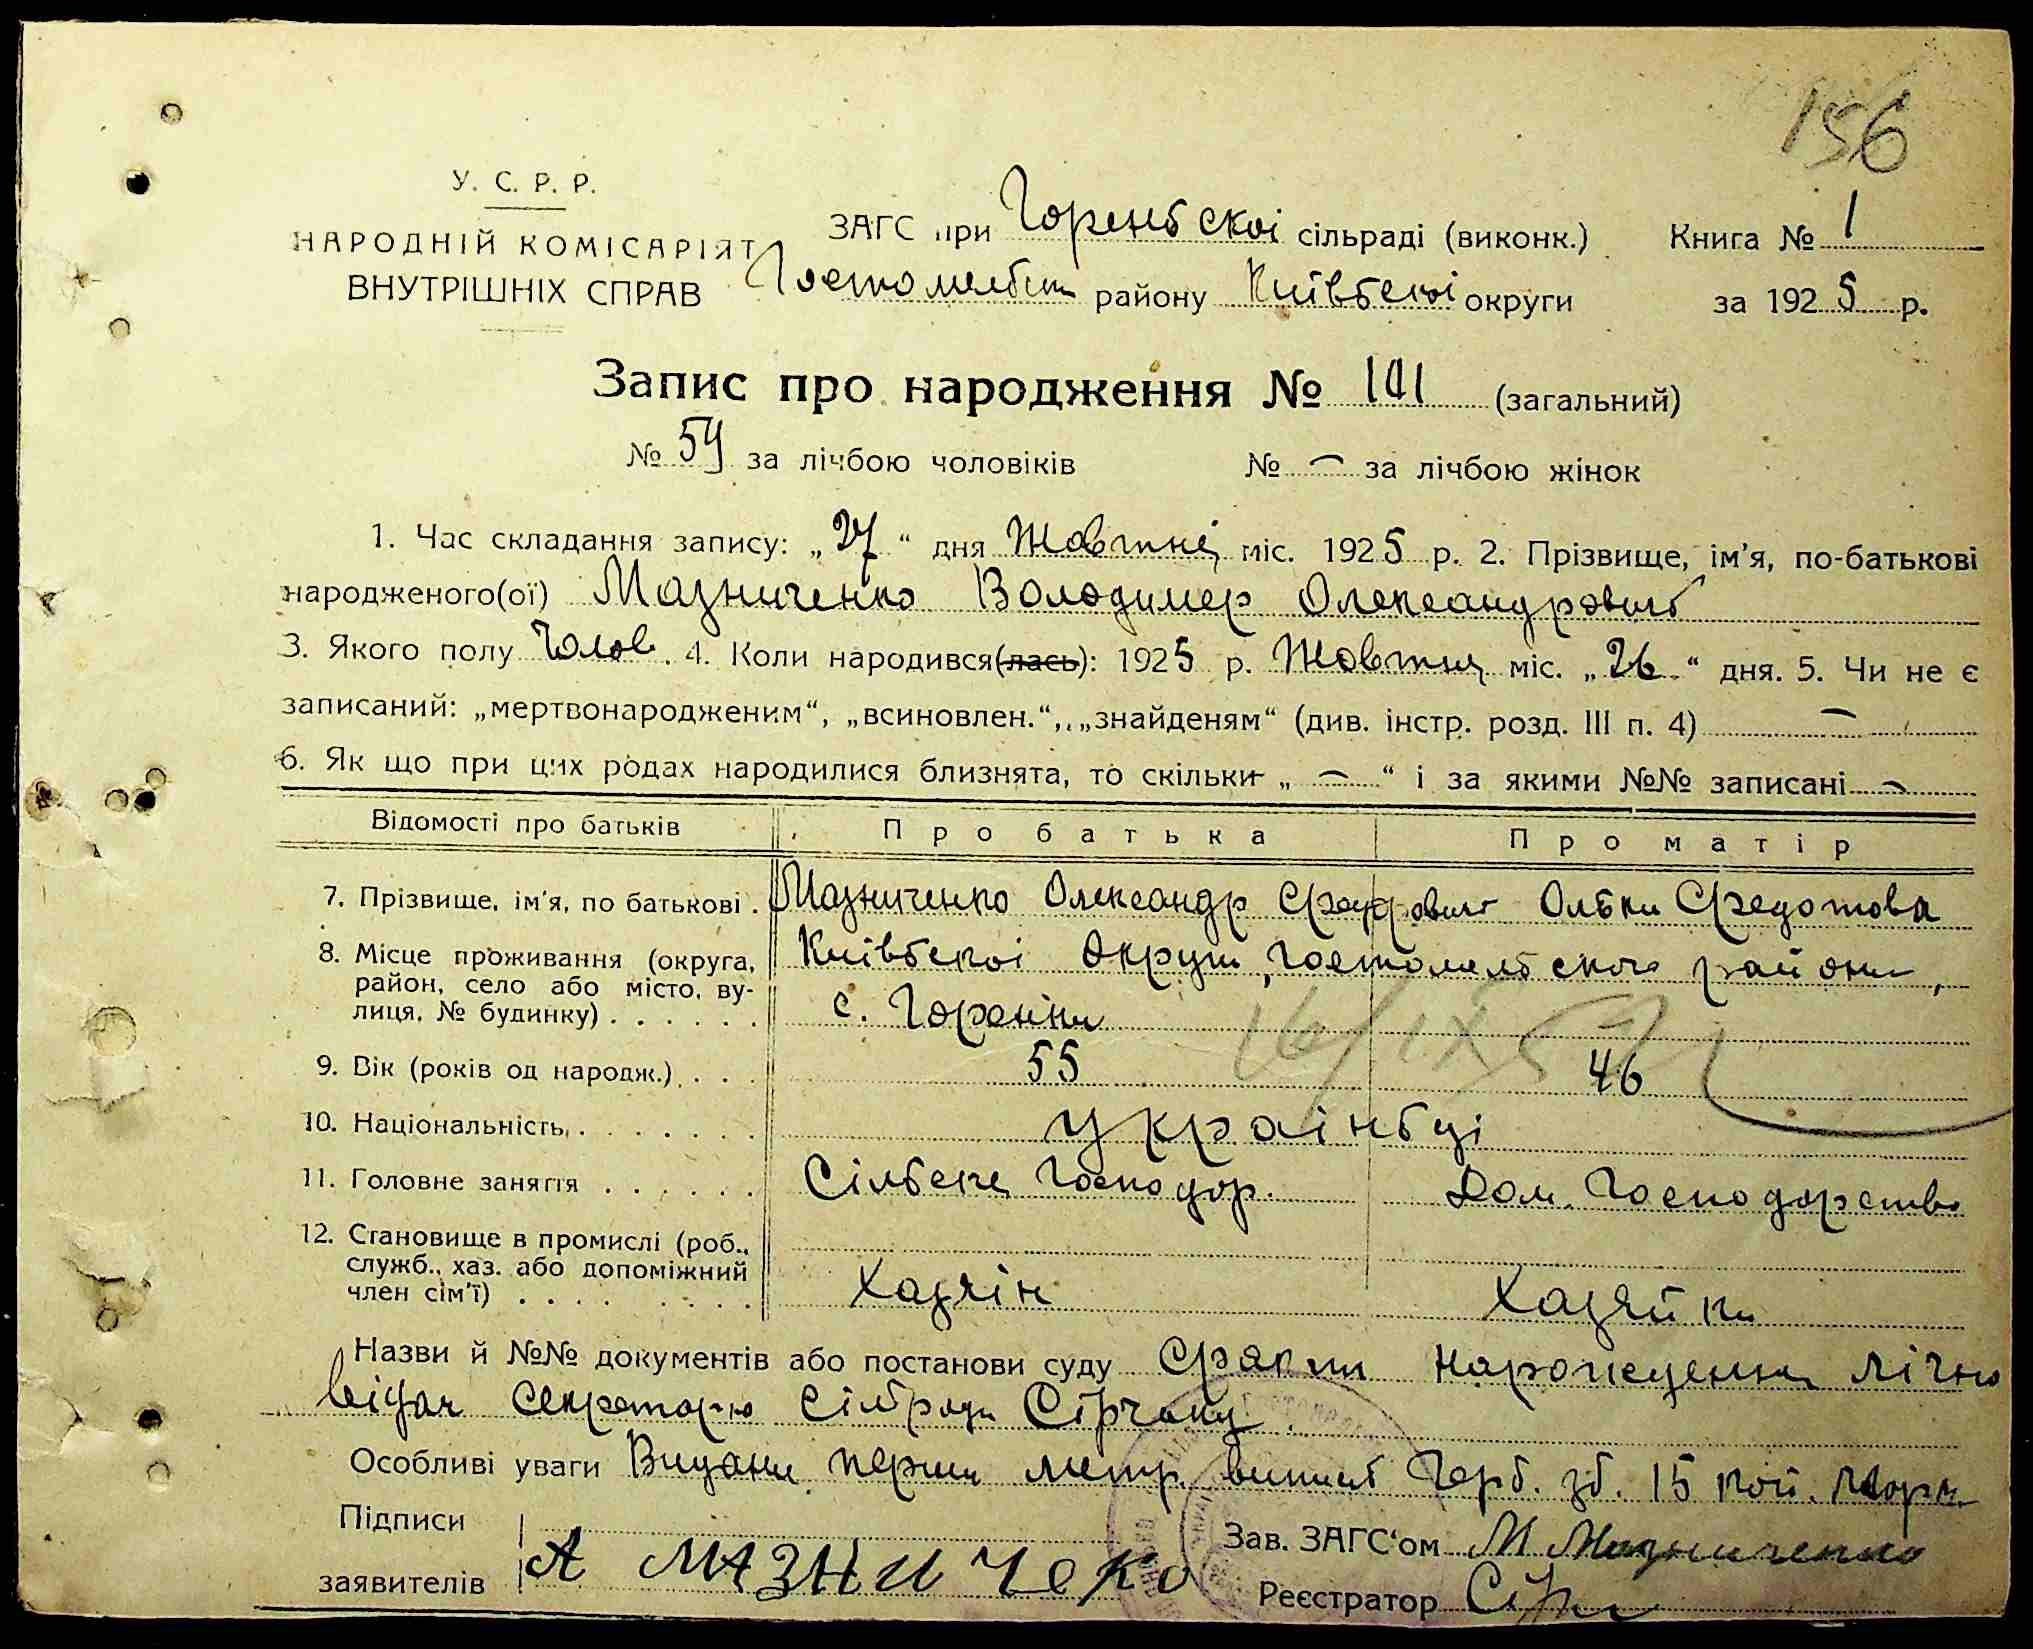 156
У. С. Р. Р.
НАРОДНІЙ КОМІСАРІЯТ
ВНУТРІШНІХ СПРАВ
ЗАГС при Горенбскоі сільраді (виконк.) Книга № 1
району Київбскоі округи за 1925 р.
Запис про народження № 101 (загальний)
№ 59 за лічбою чоловіків № — за лічбою жінок
1. Час складання запису: „27“ дня Жовтня міс. 1925 р. 2. Прізвище, ім'я, по-батькові
народженого(ої) Мазниченко Володимер Олександровичб
3. Якого полу Чолов. 4. Коли народився(лась): 1925 р. Жовтня міс. „26“ дня. 5. Чи не є
записаний: „мертвонародженим“, „всиновлен.“, „знайденям“ (див. інстр. розд. III п. 4) —
6. Як що при цих родах народилися близнята, то скільки „ — “ і за якими №№ записані —
Відомості про батьків Про батька Про матір
7. Прізвище, ім'я, по батькові. Мазниченко Олександр Олбки Федотова
8. Місце проживання (округа, Київбскоі округи, Гостомелбского району,
район, село або місто, ву-
лиця, № будинку) . . . . . . с. Горенки
16/IX 52
9. Вік (років од народж.) . . . 55 46
10. Національність . . . . . . . українбці
11. Головне заняття . . . . . . Сілбске Господар. Дом. Господарство
12. Становище в промислі (роб.,
служб., хаз. або допоміжний
член сім'ї) . . . . . . . . Хазяін Хазяйка
Назви й №№ документів або постанови суду Факт народження лічно
відам секретарю Сілбради Сірчаку
Особливі уваги Видана перша метр. виписб Герб. зб. 15 коп.
Підписи
заявителів А МАЗНИЧеКо
Зав. ЗАГС'ом М Мазниченко
Реєстратор